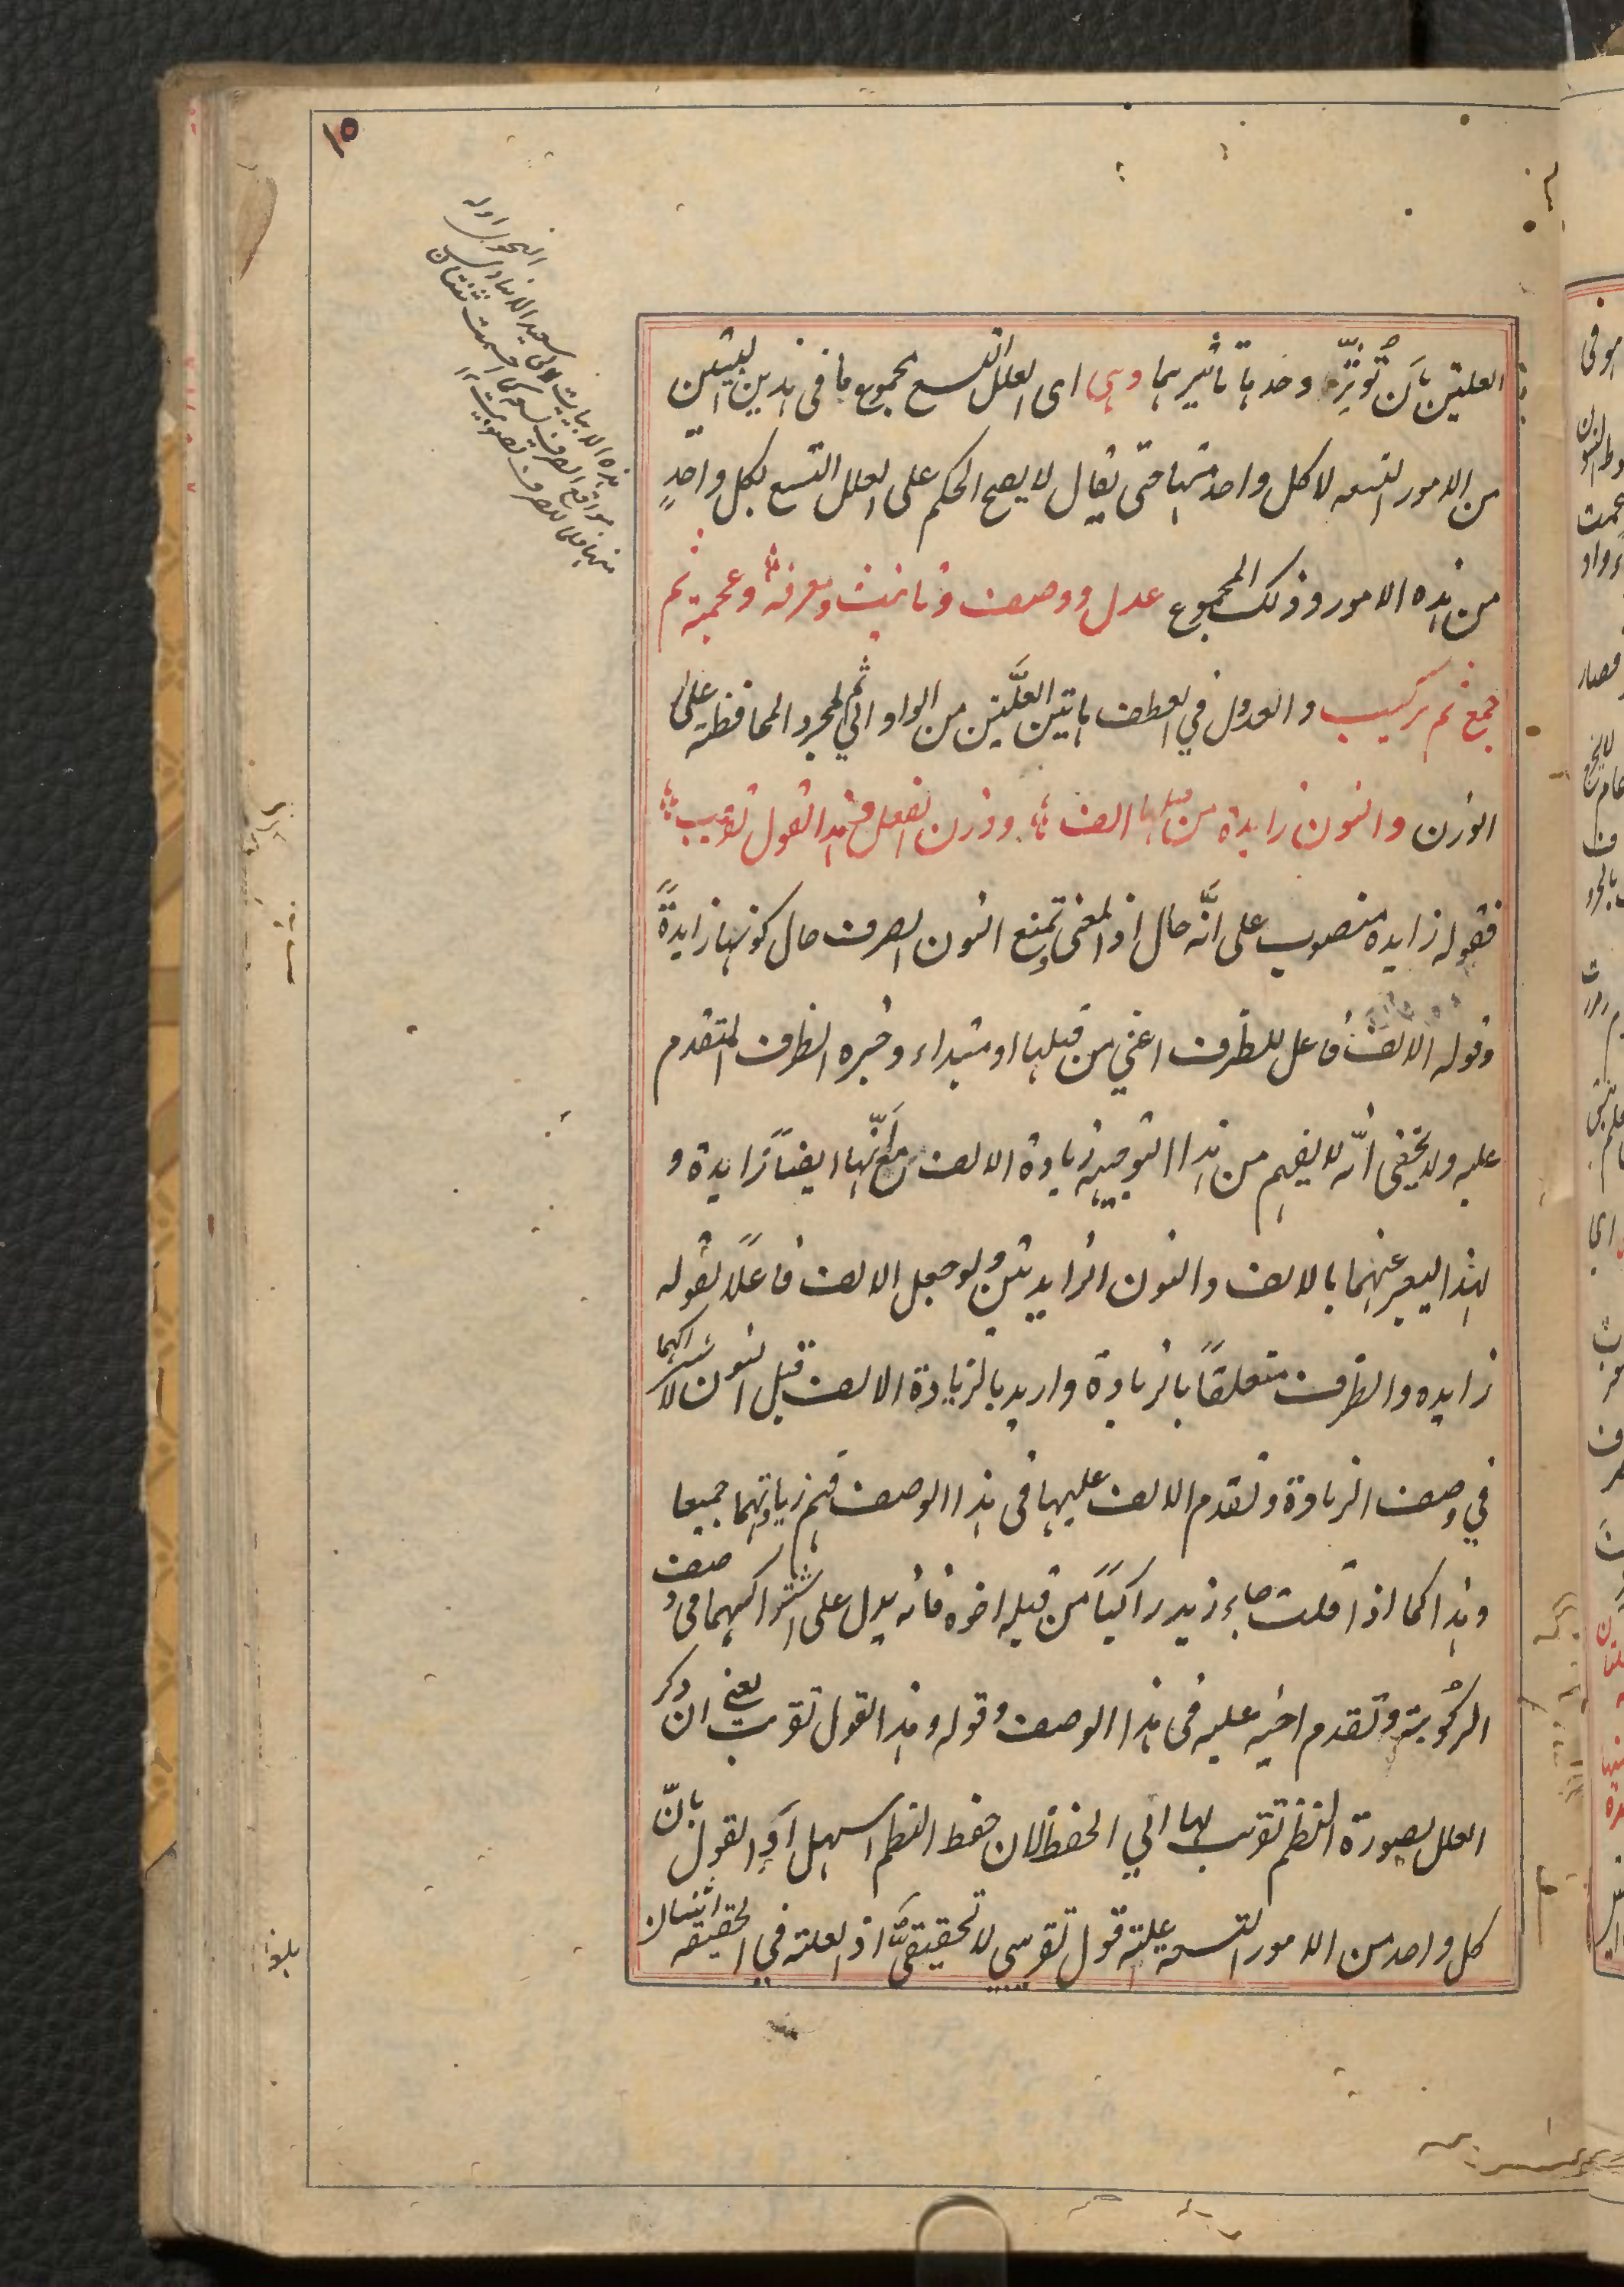 ١٥
العلتين بان تُوثّر وحدها تاثيرهما وهى اى العلل التسع مجموع ما فى هذين البيتين
من الامور التسعه لا كل واحد منها حتى يقال لا يصح الحكم على العلل التسع لكل واحدٍ
من هذه الامور وذلك المجموع عدل ووصف وتانيث ومعرفة وعجمة ثم
جمع ثم تركيب والعدول في العطف بهاتين العلّتين من الواو الي ثم لمجرد المحافظة على
الوزن والنون زايدة من قبلها الف ووزن الفعل وهذا القول تقريب
فقوله زايدة منصوب على انّه حال اذ المعنى وتمنع النون الصرف حال كونها زايدةً
وقوله الالف فاعل للظرف اعني من قبلها او مبتداء وخبره الظرف المتقدم
عليه ولا يخفى انّه لا يفهم من هذا التوجيه زيادة الالف مع انّها ايضاً زايدة و
لهذا يعبر عنهما بالالف والنون الزايدتين ولو جعل الالف فاعلاً لقوله
زايده والظرف متعلقاً بالزيادة واريد بالزيادة الالف قبل النون اشتراكهما
في وصف الزيادة وتقدم الالف عليها فى هذا الوصف فهم زيادتهما جميعا
وهذا كما اذا قلت جاء زيد راكباً من قبله اخوه فانه يدل على اشتراكهما فى وصف
الركُوبية وتقدم اخيه عليه فى هذا الوصف وقوله وهذا القول تقريب يعني ان ذكر
العلل بصورة النظم تقريب لها الي الحفظ لان حفظ النظم اسهل او القول بانّ
كل واحد من الامور التسعة علة قول تقريبي لا تحقيقيّ اذ العلة في الحقيقه اثنان
هذه الابيات
موانع الصرف تسع